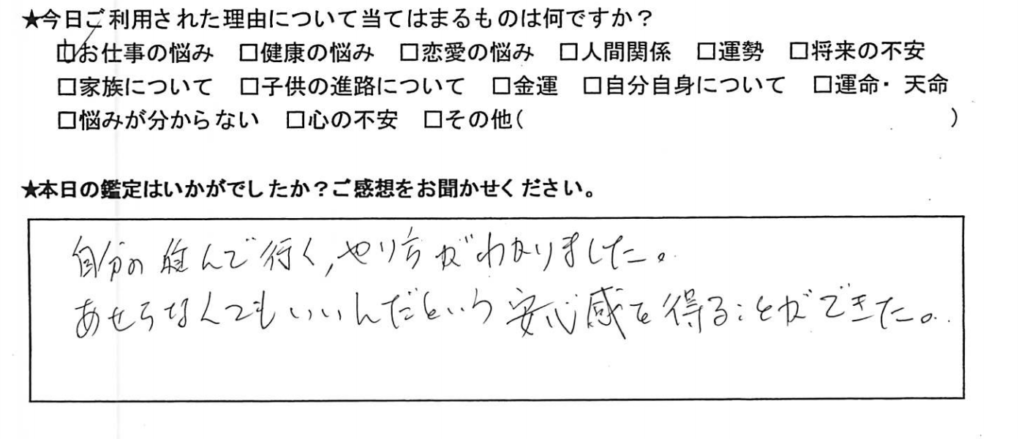 ★今日ご利用された理由について当てはまるものは何ですか？
☑お仕事の悩み □健康の悩み □恋愛の悩み □人間関係 □運勢 □将来の不安
□家族について □子供の進路について □金運 □自分自身について □運命・天命
□悩みが分からない □心の不安 □その他( )
★本日の鑑定はいかがでしたか？ご感想をお聞かせください。
自分の進んで行く,やり方がわかりました。
あせらなくてもいいんだという安心感を得ることができた。